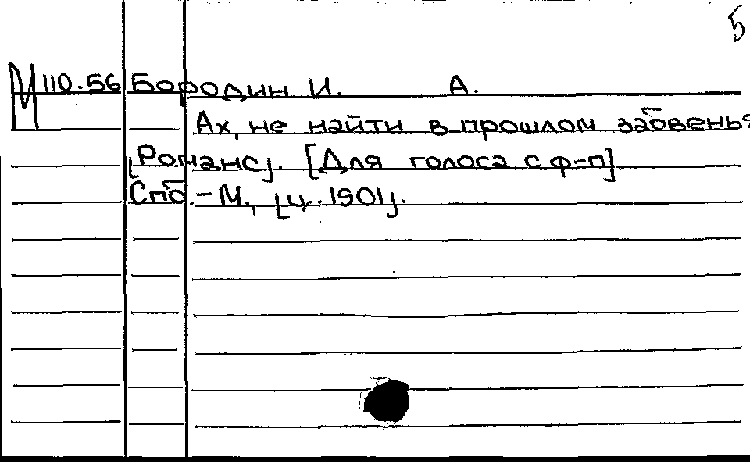 5
М 110.56 Бородин И. А.
Ах, не найти в прошлом забвенья
[Романс]. [Для голоса с ф-п]
Спб.-М., [ц. 1901].